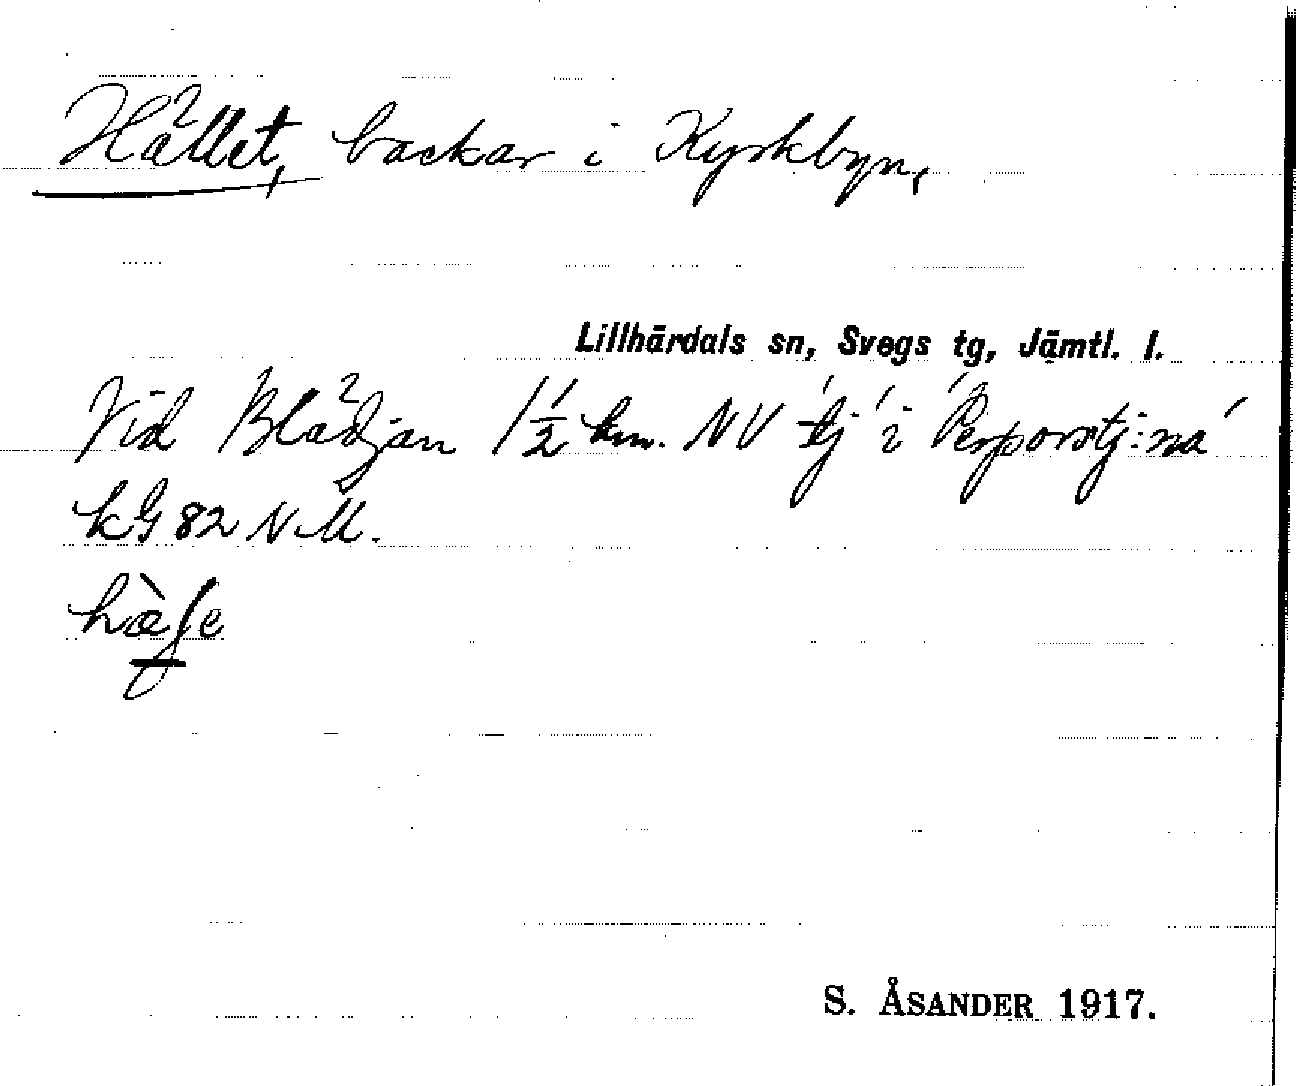 Hållet, backar i Kyrkbyn,
Lillhärdals sn, Svegs tg, Jämtl. l.
Vid Blådjan 1½ km. NV 'tj' i 'Perporstj:na'
kG 82 NM.
S. ÅSANDER 1917.